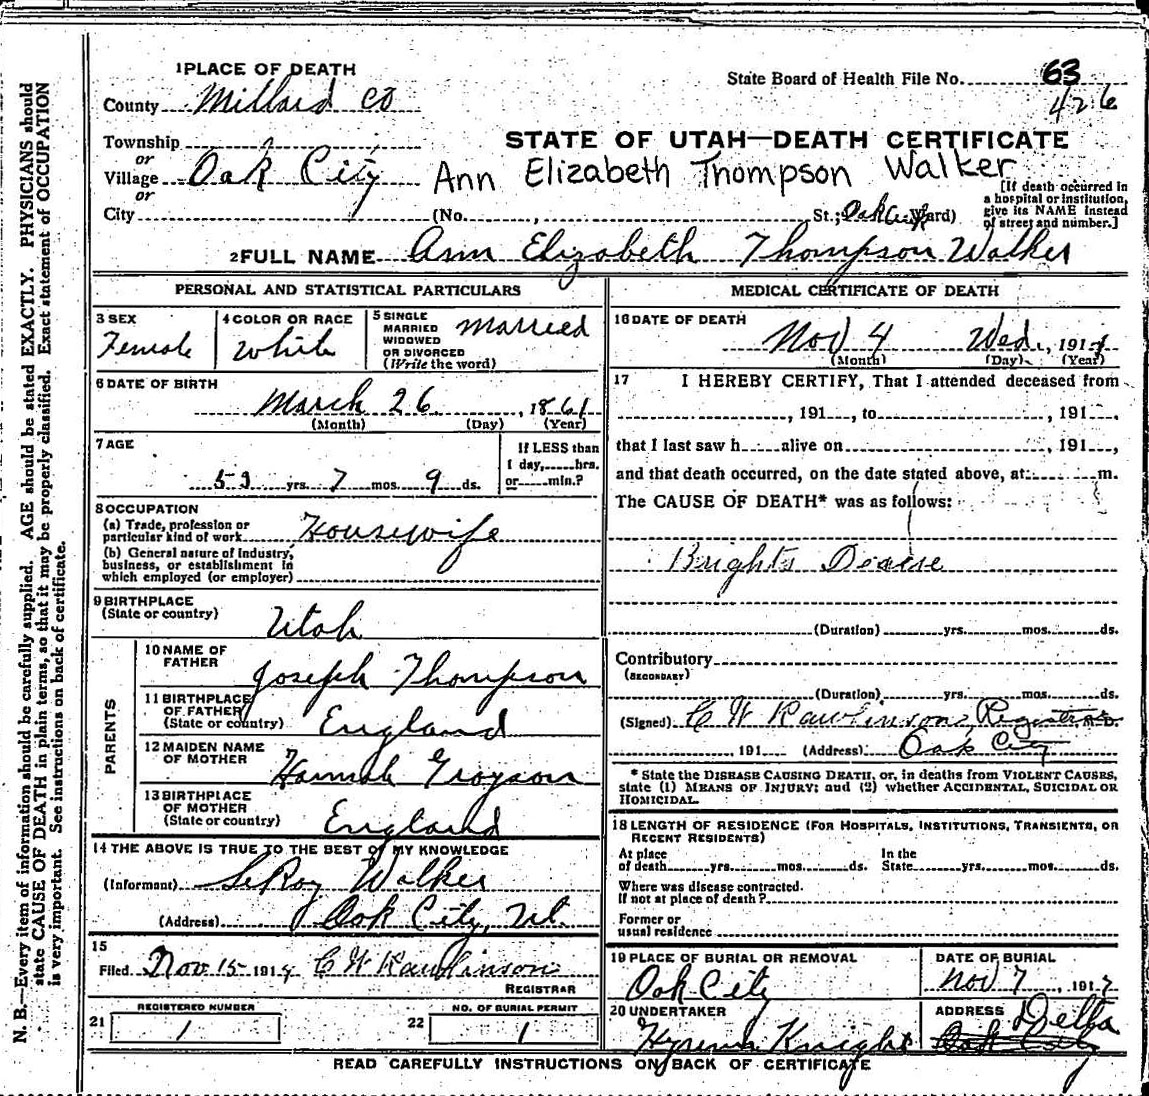 1 PLACE OF DEATH
County Millard Co
State Board of Health File No. 63
426
STATE OF UTAH—DEATH CERTIFICATE
Township
or
Village Oak City
or
Ann Elizabeth Thompson Walker
City (No. , St.; Oak City Ward)
[If death occurred in
a hospital or institution,
give its NAME instead
of street and number.]
2 FULL NAME Ann Elizabeth Thompson Walker
PERSONAL AND STATISTICAL PARTICULARS
3 SEX
Female
4 COLOR OR RACE
White
5 SINGLE
MARRIED
WIDOWED
OR DIVORCED
(Write the word)
Married
6 DATE OF BIRTH
March 26, 1861
(Month) (Day) (Year)
7 AGE
53 yrs. 7 mos. 9 ds.
If LESS than
1 day, hrs.
or min.?
8 OCCUPATION
(a) Trade, profession or
particular kind of work Housewife
(b) General nature of industry,
business, or establishment in
which employed (or employer)
9 BIRTHPLACE
(State or country)
Utah
PARENTS
10 NAME OF
FATHER
Joseph Thompson
11 BIRTHPLACE
OF FATHER
(State or country)
England
12 MAIDEN NAME
OF MOTHER
Hannah
13 BIRTHPLACE
OF MOTHER
(State or country)
England
14 THE ABOVE IS TRUE TO THE BEST OF MY KNOWLEDGE
(Informant) LeRoy Walker
(Address) Oak City, Ut.
15
Filed Nov 15 1914 C W Rawlinson
REGISTRAR
REGISTERED NUMBER
21 1
NO. OF BURIAL PERMIT
22 1
MEDICAL CERTIFICATE OF DEATH
16 DATE OF DEATH
Nov 4 Wed., 1914
(Month) (Day) (Year)
17 I HEREBY CERTIFY, That I attended deceased from
, 191 , to , 191 ,
that I last saw h alive on , 191 ,
and that death occurred, on the date stated above, at m.
The CAUSE OF DEATH* was as follows:
Brights Diease
(Duration) yrs. mos. ds.
Contributory
(SECONDARY)
(Duration) yrs. mos. ds.
(Signed) C W Rawlinson, Registrar
191 (Address) Oak City
* State the DISEASE CAUSING DEATH, or, in deaths from VIOLENT CAUSES,
state (1) MEANS OF INJURY; and (2) whether ACCIDENTAL, SUICIDAL OR
HOMICIDAL.
18 LENGTH OF RESIDENCE (FOR HOSPITALS, INSTITUTIONS, TRANSIENTS, OR
RECENT RESIDENTS)
At place
of death yrs. mos. ds.
In the
State yrs. mos. ds.
Where was disease contracted.
If not at place of death?
Former or
usual residence
19 PLACE OF BURIAL OR REMOVAL
Oak City
DATE OF BURIAL
Nov 7, 191
20 UNDERTAKER
Hyrum Knight
ADDRESS Delta
Oak City
READ CAREFULLY INSTRUCTIONS ON BACK OF CERTIFICATE
N. B.—Every item of information should be carefully supplied. AGE should be stated EXACTLY. PHYSICIANS should
state CAUSE OF DEATH in plain terms, so that it may be properly classified. Exact statement of OCCUPATION
is very important. See instructions on back of certificate.